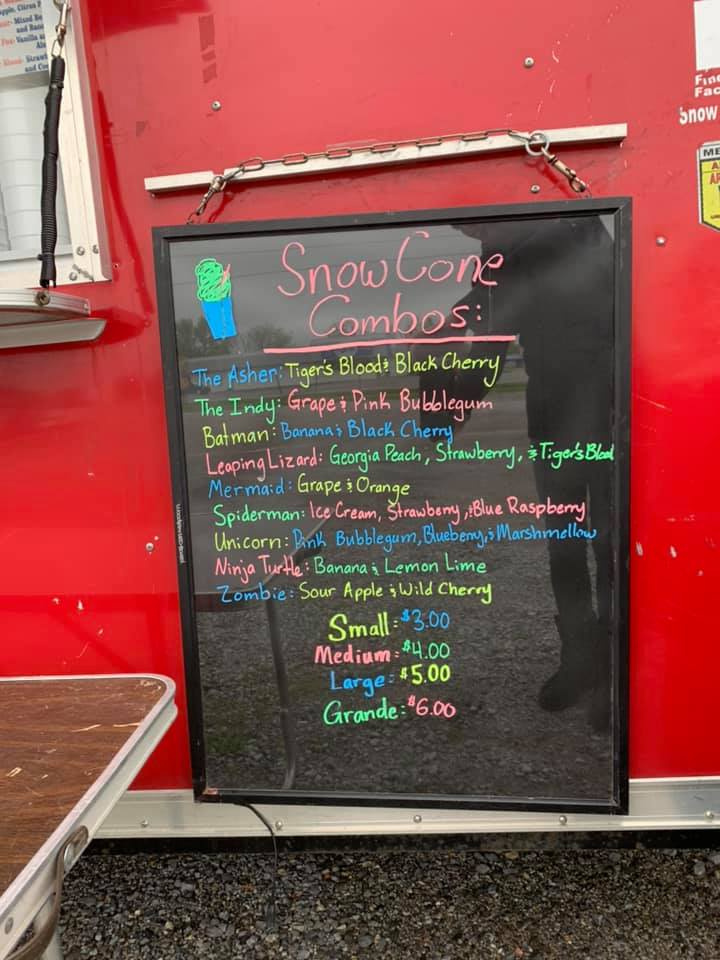 Apple, Citrus P
Mixed Be
and Bana
Vanilla an
Straw
and Co
Find
Fac
Snow
ME
Snow Cone
Combos:
The Asher: Tiger's Blood & Black Cherry
The Indy: Grape & Pink Bubblegum
Batman: Banana & Black Cherry
Leaping Lizard: Georgia Peach, Strawberry, & Tiger's Blood
Mermaid: Grape & Orange
Spiderman: Ice Cream, Strawberry, & Blue Raspberry
Unicorn: Pink Bubblegum, Blueberry, & Marshmellow
Ninja Turtle: Banana & Lemon Lime
Zombie: Sour Apple & Wild Cherry
Small: $3.00
Medium: $4.00
Large: $5.00
Grande: $6.00